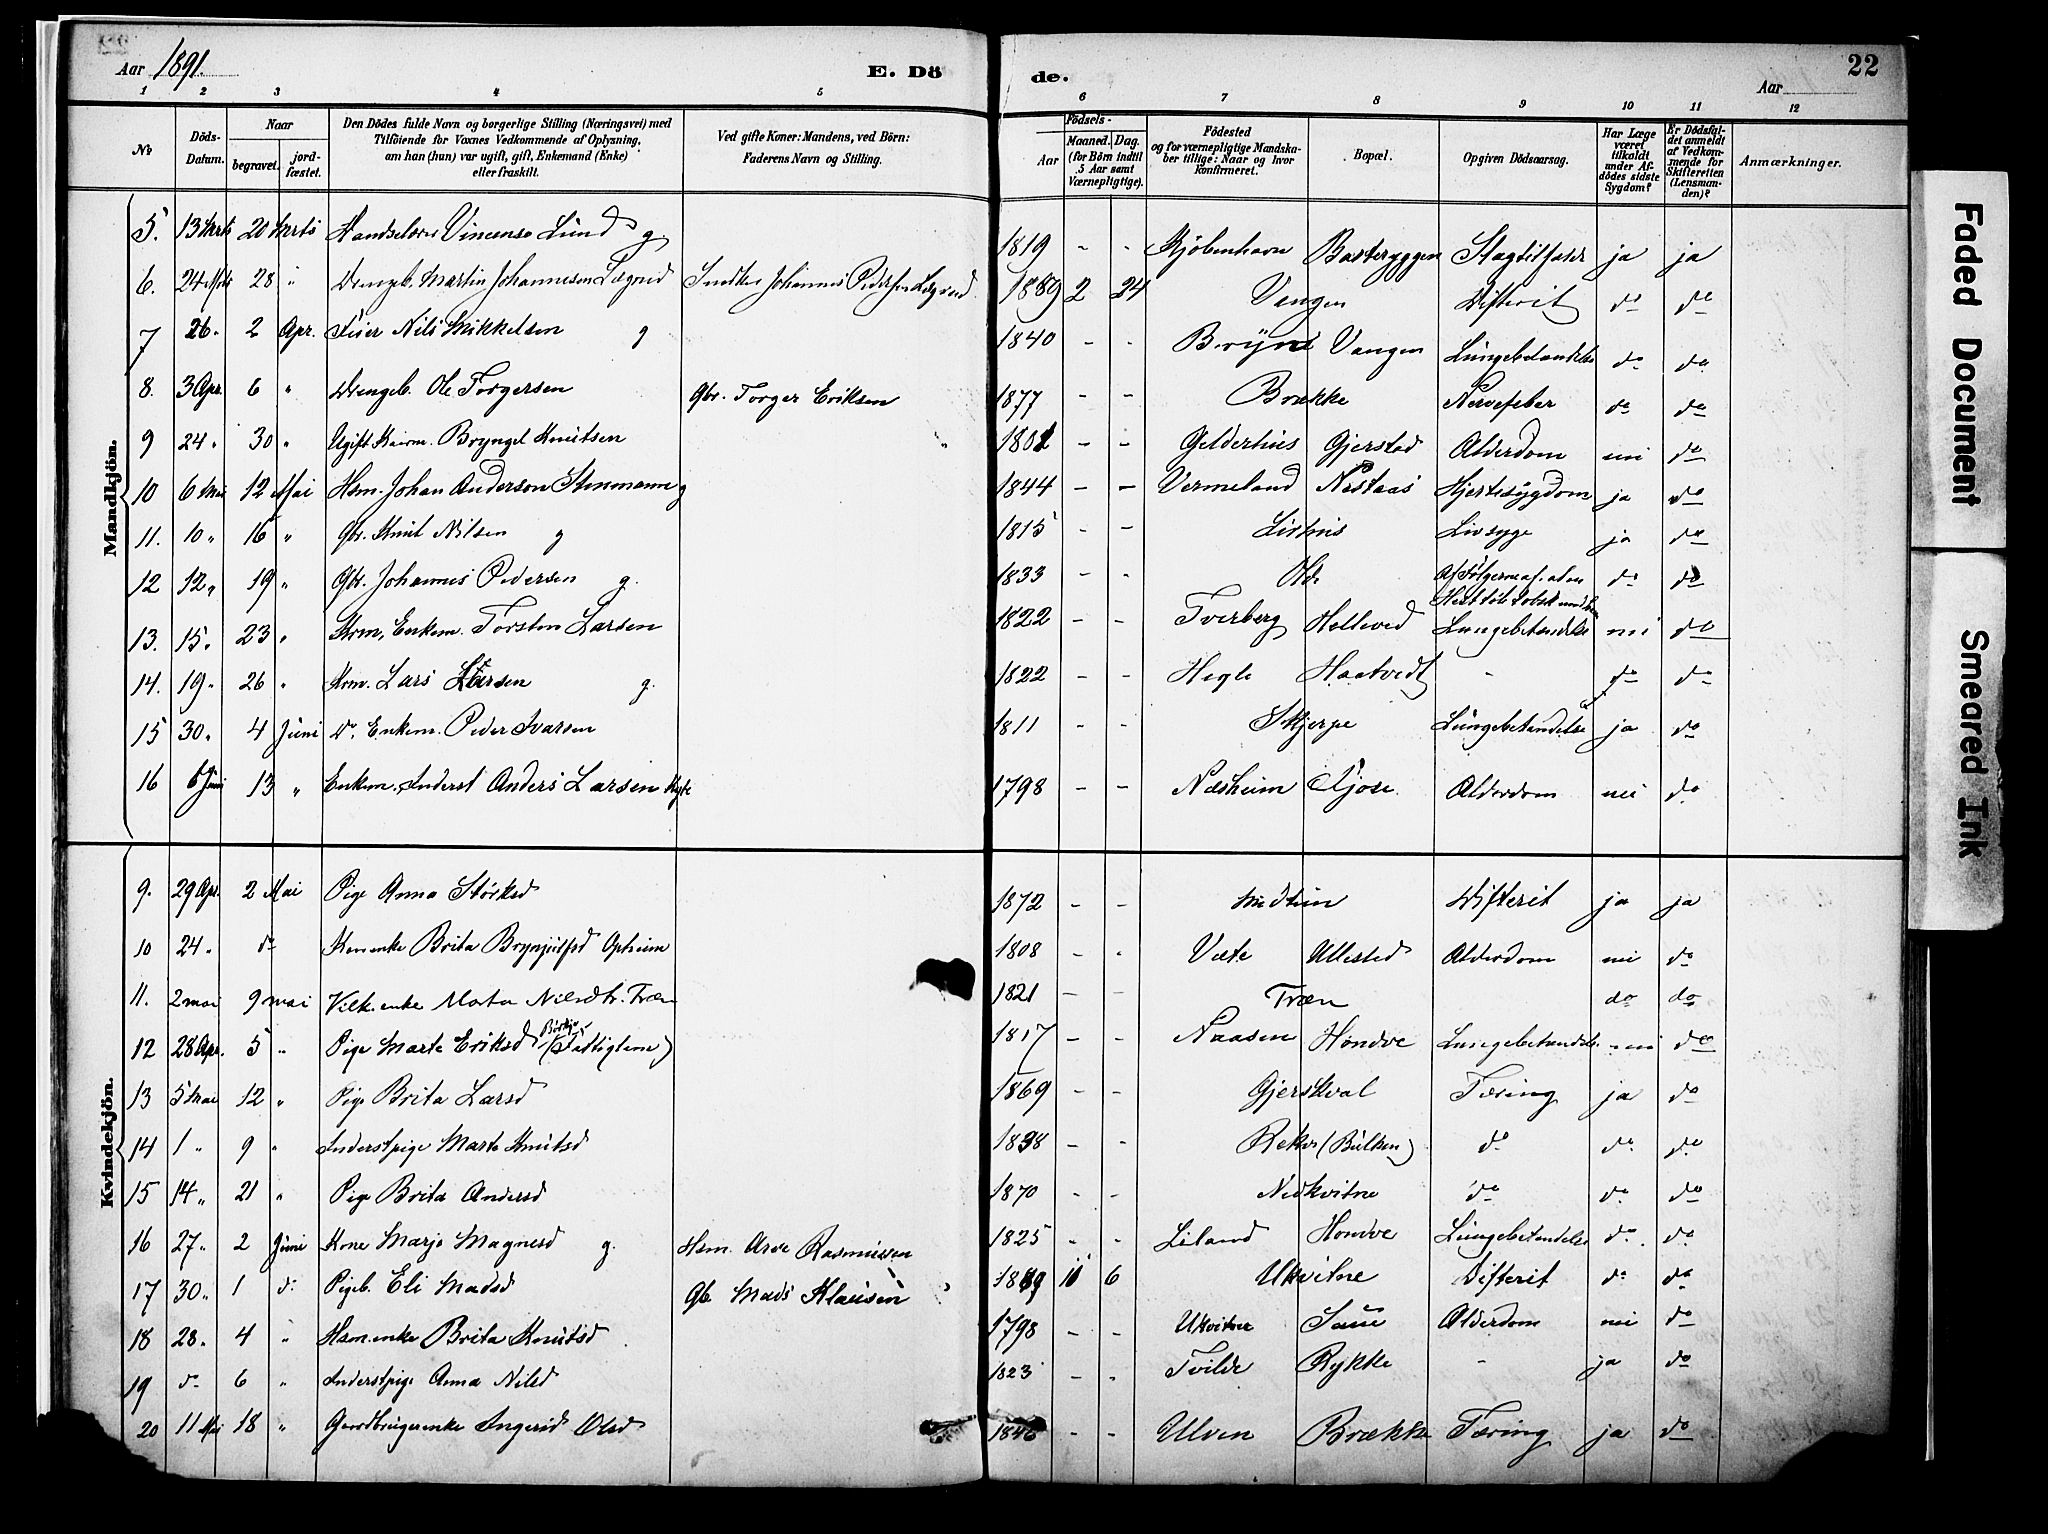 Aar 1891. E. Dö de. Aar 22
1 2 3 4 5 6 7 8 9 10 11 12
№ Döds-Datum. Naar begravet. jordfæstet. Den Dödes fulde Navn og borgerlige Stilling (Næringsvei) med Tilföiende for Voxnes Vedkommende af Oplysning, om han (hun) var ugift, gift, Enkemand (Enke) eller fraskilt. Ved gifte Koner: Mandens, ved Börn: Faderens Navn og Stilling. Födsels- Aar Maaned. Dag. (for Börn indtil 5 Aar samt Værnepligtige). Födested og for værnepligtige Mandskaber tillige: Naar og hvor konfirmeret. Bopæl. Opgiven Dödsaarsag. Har Læge været tilkaldt under Afdödes sidste Sygdom? Er Dödsfaldet anmeldt af Vedkommende for Skifteretten (Lensmanden)? Anmærkninger.
Mandkjön.
5. 13 Marts 20 Marts Vincense Lund g. 1819 - - Kjöbenhavn Slagtilfælde ja ja
6. 24 Mts 28 " Drengeb. Martin Johannesen Lægreid Snedker Johannes Pedersen Lægreid 1889 2 24 Vangen Difterit do do
7 26. 2 Apr. Feier Nils Mikkelsen g 1840 - - Brynd Vangen Lungebetændelse do do
8. 3 Apr. 6 " Drengeb. Ole Torgersen Gbr. Torger Eriksen 1877 - - Brække Nervefeber do do
9 24 " 30 " Ugift Kaarm. Bryngel Knutsen " 1802 - - Gjelderhus Gjerstad Alderdom nei do
10 6 Mai 12 Mai Hsm. Johan Anderson Stenmann g 1844 - - Vermeland Nestaas Hjertesygdom ja do
11. 10 " 16 " Gbr. Knut Nilsen g 1815 - - Lirhus Livsyge ja do
12 12 " 19 " Gbr. Johannes Pedersen g. 1833 - - Af Fölgerne af, at en Hest do do
13. 15. 23 " Krm. Enkem. Torsten Larsen 1822 - - Tverberg Helleved Lungebetændelse nei do
14. 19 " 26 " Krm. Lars Larsen g. 1822 - - Hegle Haatvedt - do do
15 30 " 4 Juni Do. Enkem. Peder Ivarsen 1811 - - Skjerpe Lungebetændelse ja do
16 6 Juni 13 " Enkem. Inderst Anders Larsen Kyte 1798 - - Næsheim Kjose. Alderdom nei do
Kvindekjön.
9. 29 Apr. 2 Mai Pige Anna Störksd 1872 - - Medhun Difterit ja ja
10 24 " do Kaarenke Brita Brynjulfsd Opheim 1808 - - Væte Ullestad Alderdom nei do
11. 2 mai 9 mai Vilk. enke Marta Nilsdtr. Træn 1821 - - Træn do do
12 28 Apr. 5 " Pige Marta Eriksd Börkje (Fattiglem) 1817 - - Naasen Hondve Lungebetændelse. nei do
13 5 Mai 12 " Pige Brita Larsd 1869 - - Gjerskval Tæring ja do
14 1 " 9 " Inderstpige Marta Knutsd 1838 - - Rekve (Bulken) do do do
15 14 " 21 " Pige Brita Andersd 1870 - - Nedkvitne do do do
16 27 " 2 Juni Kone Marjo Magnesd g. Hsm. Arve Rasmussen 1825 - - Liland Hondve Lungebetændelse do. do
17 30 " 1 do Pigeb. Eli Madsd Gb Mads Klausen 1889 10 6 Ukvitne Difterit do do
18 28 " 4 " Hsm. enke Brita Knutsd 1798 - - Ukvitne Saue Alderdom nei do
19 do 6 " Inderstpige Anna Nilsd 1823 - - Tvilde Rykke - ja do
20 11 Mai 18 " Gaardbrugerenke Ingerid Olsd 1846 - - Ulven Brække Tæring ja do
Faded Document
Smeared Ink